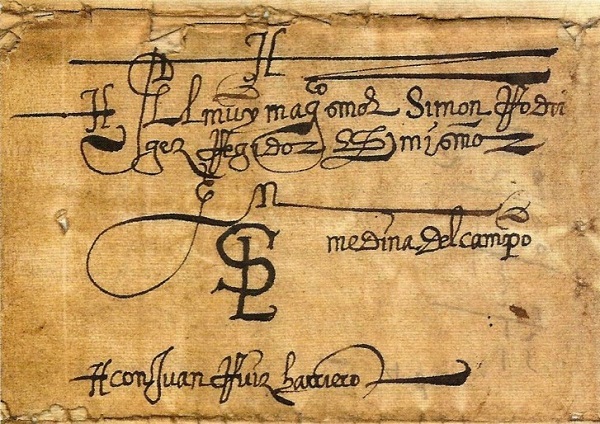 Al muy mag^co señor Simon Rodri
gez Regidor mi señor
en
medina del campo
con Juan Ruiz harriero